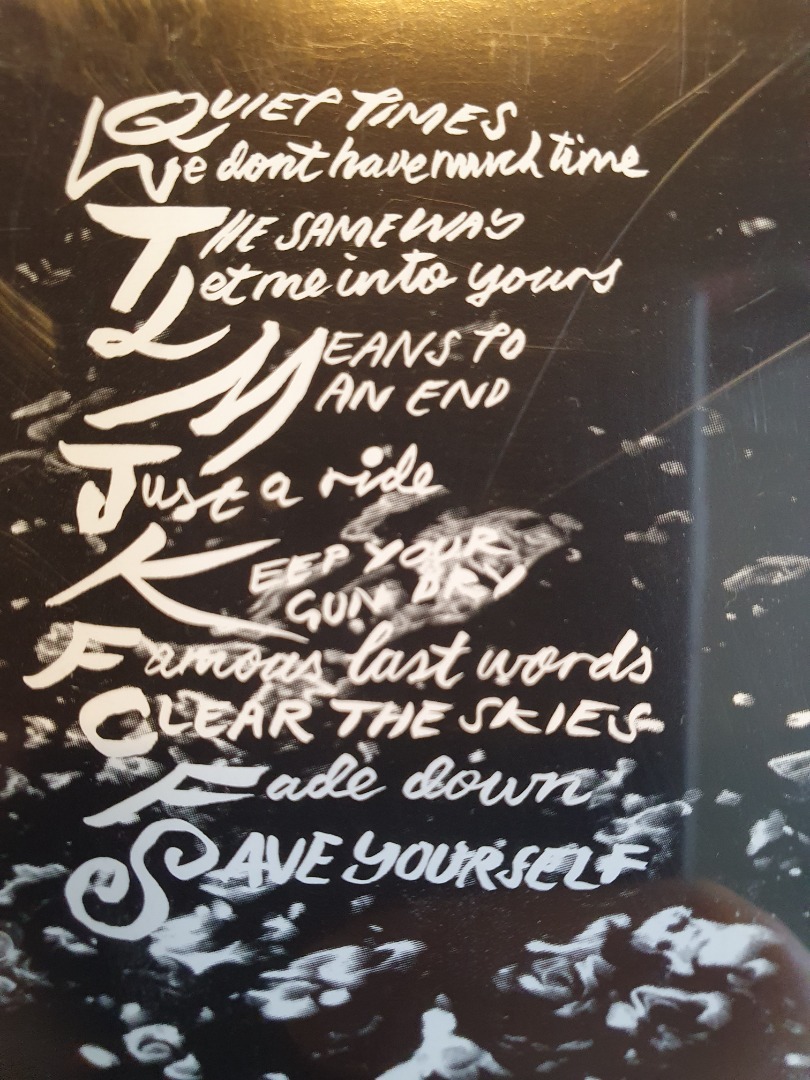 QUIET TIMES
We dont have much time
THE SAME WAY
Let me into yours
MEANS TO
AN END
Just a ride
KEEP YOUR
GUN DRY
Famous last words
CLEAR THE SKIES
Fade down
SAVE YOURSELF